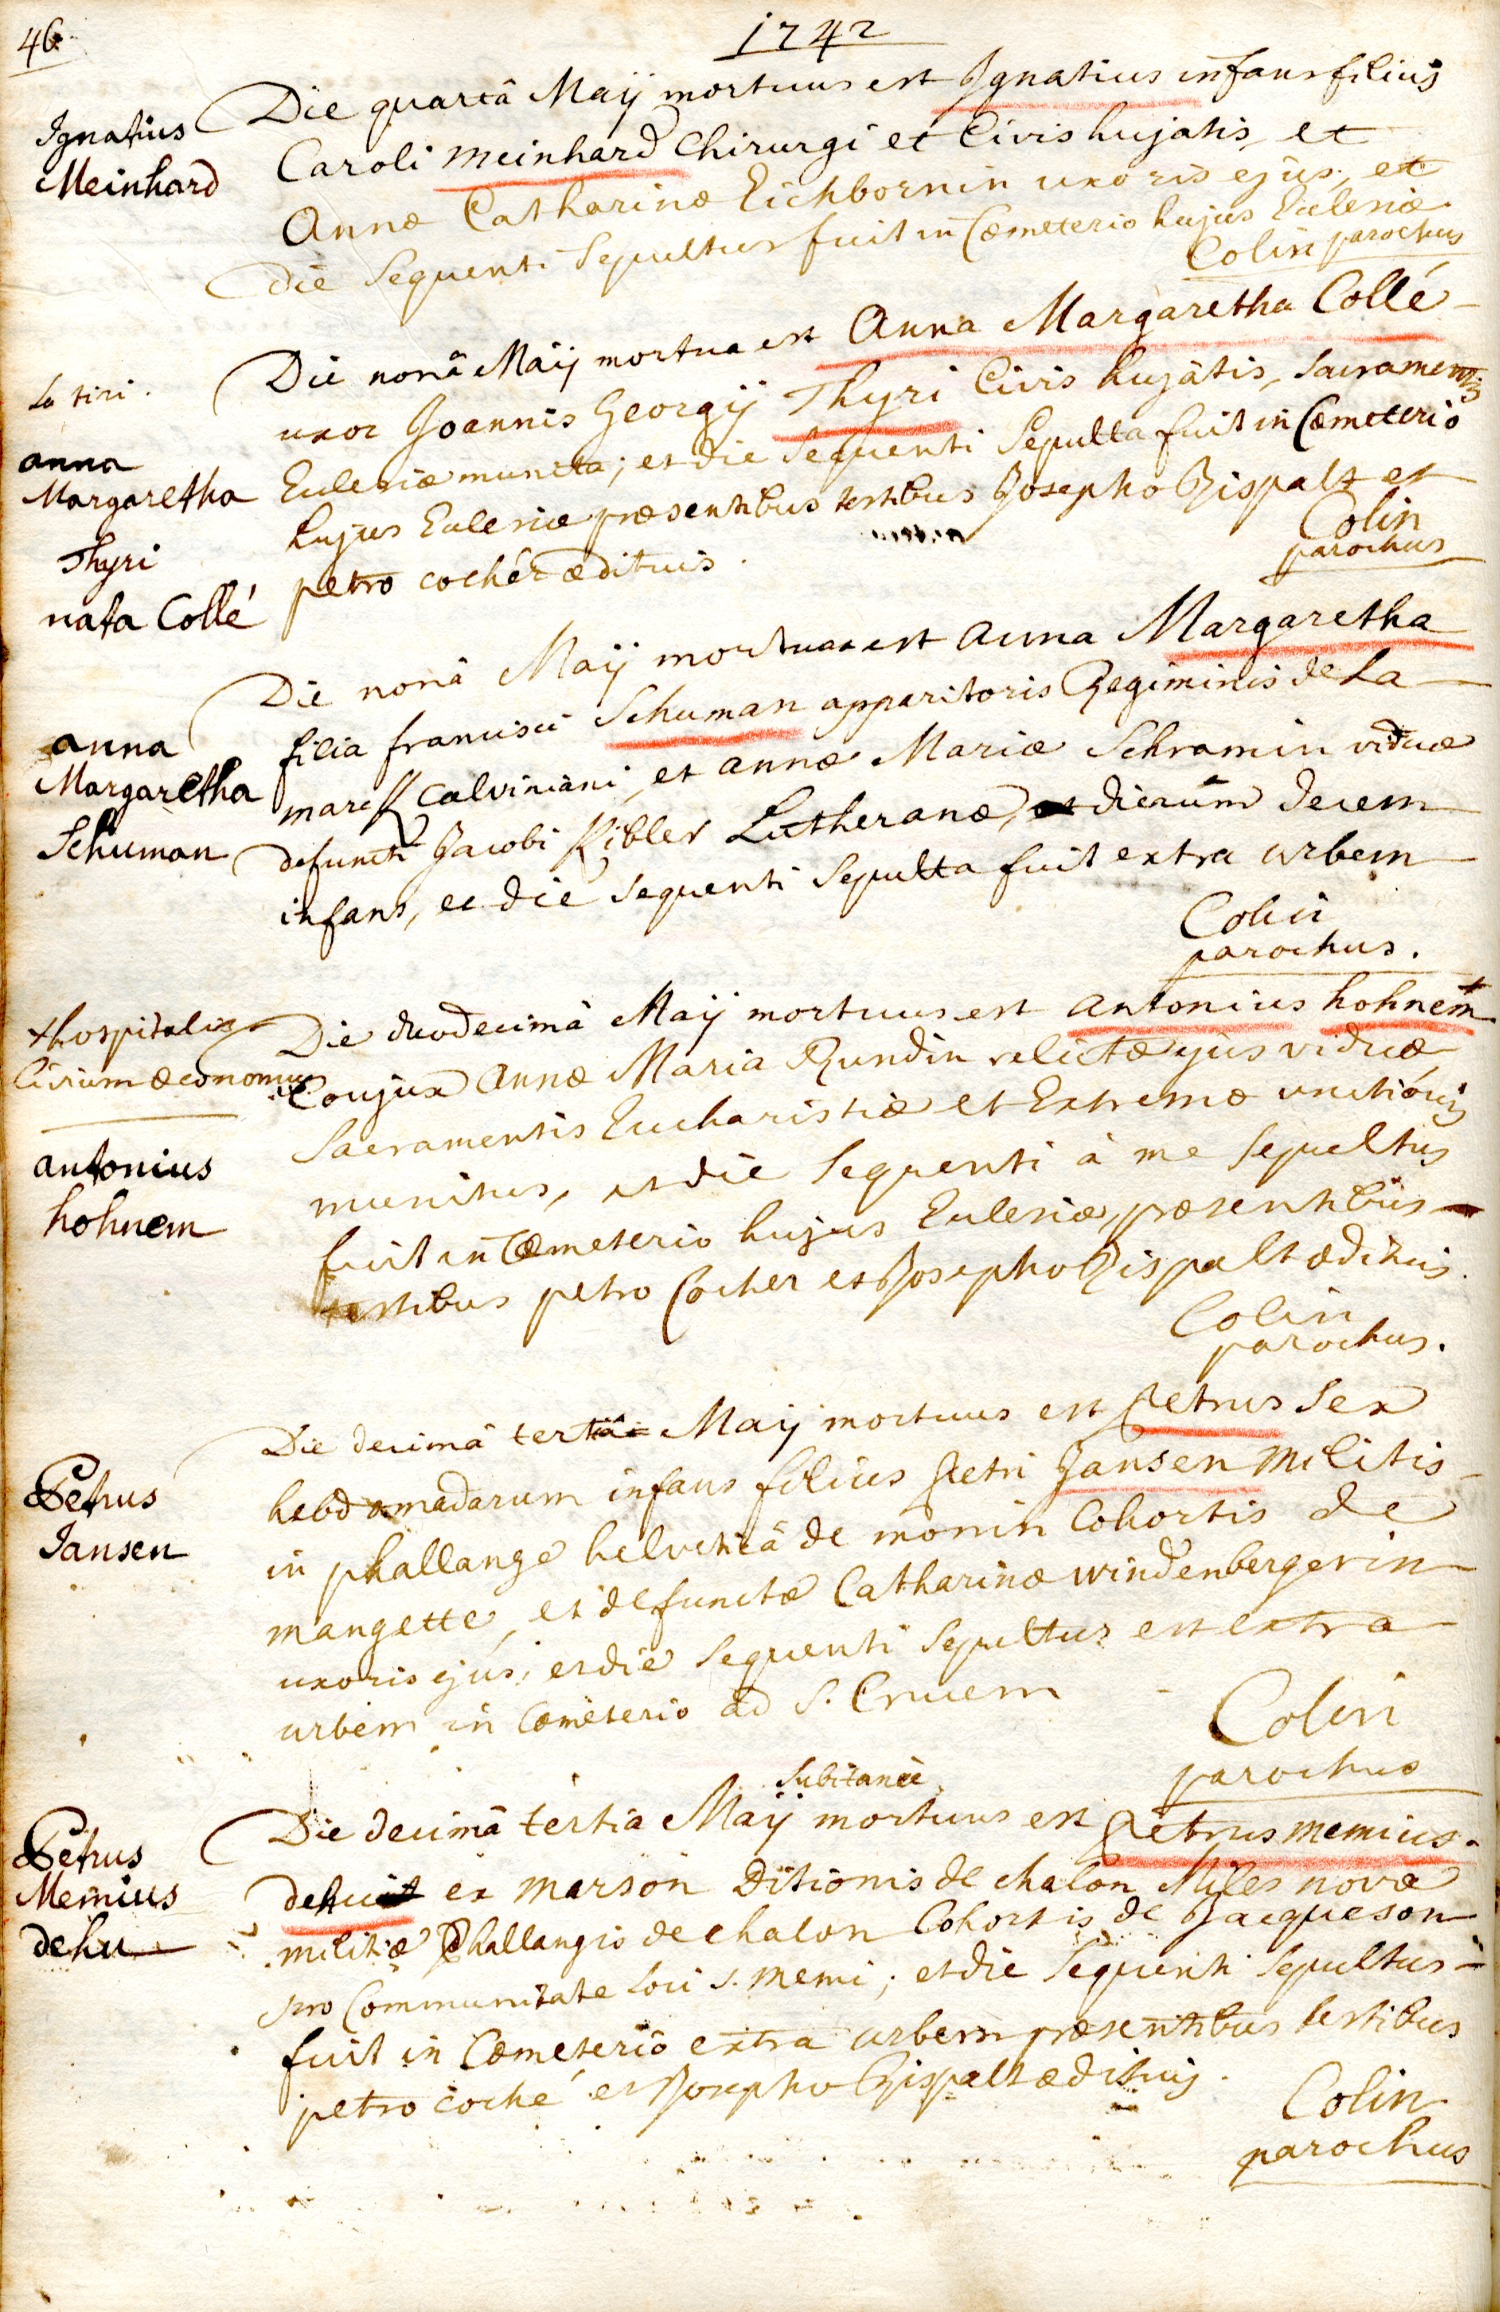 46
1742
Ignatius
Meinhard
Die quartâ Maÿ mortuus est Ignatius infans filius
Caroli Meinhard Chirurgi et Civis hujatis, et
Annæ Catharinæ Eichbornin uxoris ejus, et
die sequenti sepultus fuit in Cœmeterio hujus Ecclesiæ.
Colin parochus
La tiri.
anna
Margaretha
Thyri
nata Collé
Die nonâ Maÿ mortua est Anna Margaretha Collé
uxor Joannis Georgÿ Thyri Civis hujatis, Sacramentis
Ecclesiæ munita; et die sequenti sepulta fuit in Cœmeterio
hujus Ecclesiæ præsentibus testibus Josepho Rispalt et
petro cochér ædituis.
Colin
parochus
anna
Margaretha
Schuman
Die nonâ Maÿ mortua est anna Margaretha
filia francisci Schuman apparitoris Regiminis de La
marck calviniani, et annæ Mariæ Schramin viduæ
defuncti Jacobi Kibler Lutheranæ, dierum decem
infans, et die sequenti sepulta fuit extra urbem
Colin
parochus.
+ hospitalis
Civium œconomus
antonius
hohnem
Die duodecimâ Maÿ mortuus est antonius hohnem +
Conjux Annæ Maria Rundin relictæ ejus viduæ
Sacramentis Eucharistiæ et Extremæ unctionis
munitus, et die sequenti à me sepultus
fuit in Cœmeterio hujus Ecclesiæ, præsentibus
testibus petro Cocher et Josepho Rispalt ædituis.
Colin
parochus.
Petrus
Jansen
Die decimâ tertiâ Maÿ mortuus est Petrus sex
hebdomadarum infans filius Petri Jansen militis
in phallange helveticâ de monin Cohortis de
mangette, et defunctæ Catharinæ windenbergerin
uxoris ejus; et die sequenti sepultus est extra
urbem in Cœmeterio ad S. Crucem
Colin
parochus
Petrus
Memius
dehu
subitaneè
Die decimâ tertiâ Maÿ mortuus est Petrus memius
dehu ex marson Ditionis de chalon Miles novæ
militiæ Phallangis de chalon Cohortis de Jacqueson
pro Communitate loci s. memi; et die sequenti sepultus
fuit in Cœmeterio extra urbem præsentibus testibus
petro coché et Josepho Rispalt ædituis.
Colin
parochus